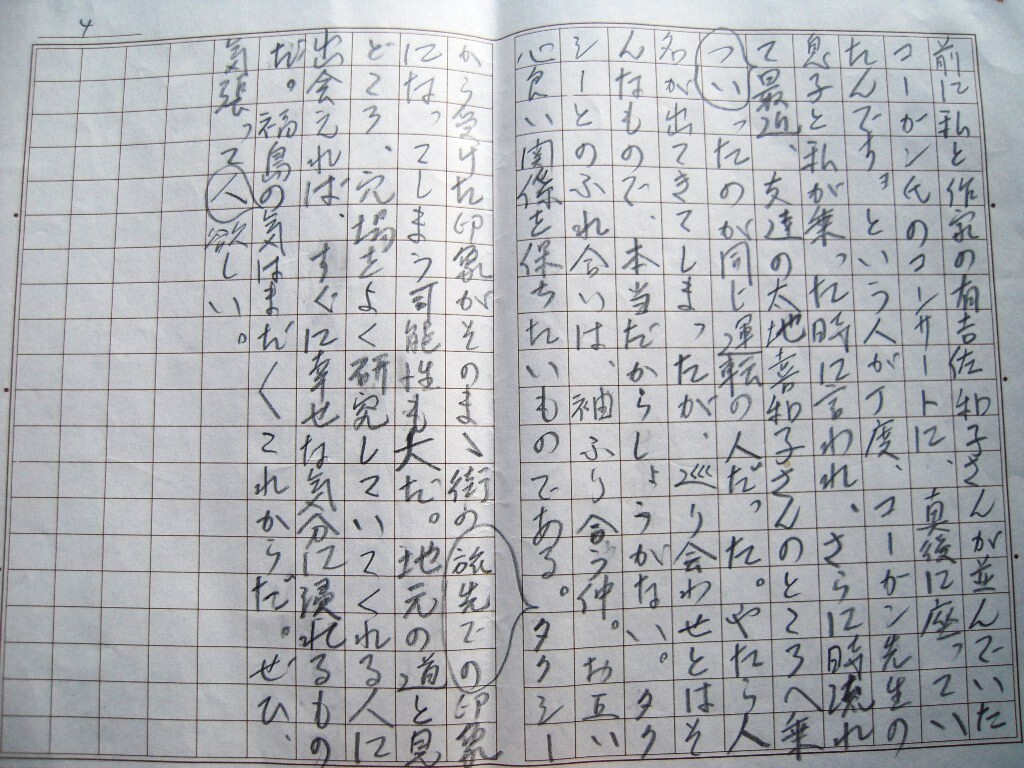 4
前に私と作家の有吉佐和子さんが並んでいた
コーガン氏のコンサートに、真後に座ってい
たんです』という人が丁度、コーガン先生の
息子と私が乗った時に言われ、さらに時流れ
て最近、友達の太地喜和子さんのところへ乗
ついったのが同じ運転の人だった。やたら人
名が出てきてしまったが、巡り会わせとはそ
んなもので、本当だからしょうがない。タク
シーとのふれ合いは、袖ふり合う仲。お互い
心良い関係を保ちたいものである。タクシー
から受けた印象がそのまゝ街の旅先での印象
になってしまう可能性も大だ。地元の道と見
どころ、穴場をよく研究していてくれる人に
出会えれば、すぐに幸せな気分に浸れるもの
だ。福島の気はまだ〱これからだ。ぜひ、
気張って人欲しい。